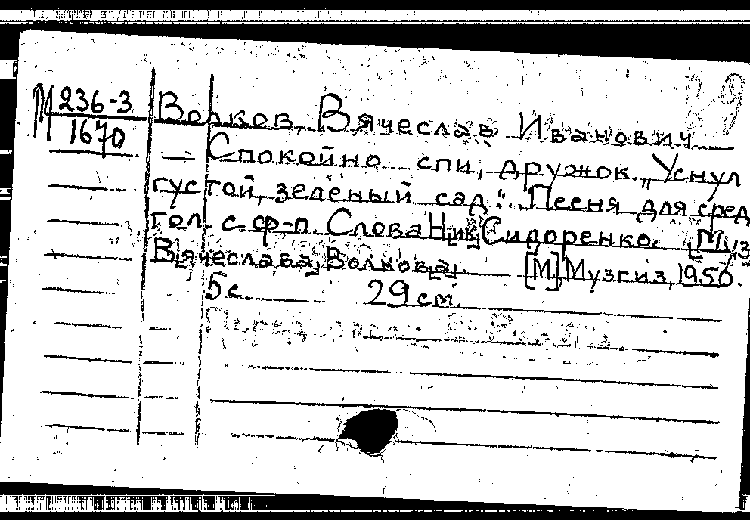 М 236-3
1670
Волков, Вячеслав Иванович
— Спокойно спи, дружок. „Уснул
густой, зелёный сад". Песня для сред
гол. с ф-п. Слова Ник. Сидоренко. [Муз
Вячеслава Волкова]. [М], Музгиз, 1950.
5 с. 29 см.